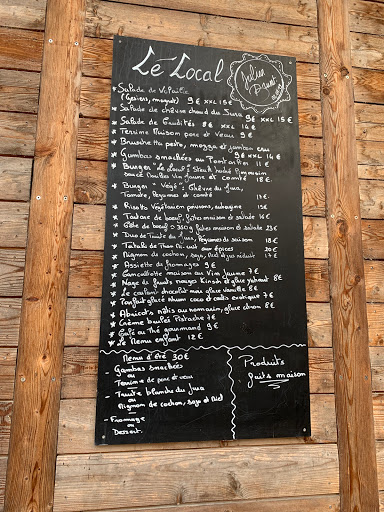 Le Local
Julien
* Salade de Volaille
(Gésiers, magret) 9€ XXL 15€
* Salade de chèvre chaud du Jura 9€ XXL 15€
* Salade de Crudités 8€ XXL 14€
* Terrine Maison porc et veau 9€
* Bruschetta pesto, mozza et jambon cru 9€ XXL 14€
* Gambas snackées au Pontarlier 11€
* Burger "Le Local": Steak haché
sauce Morilles Vin Jaune et comté 18€.
* Burger "Végé": Chèvre du Jura,
Tomate, Légumes et comté 17€.
* Risotto Végétarien poivrons, aubergine 15€
* Tartare de boeuf, frites maison et salade 16€
* Côte de boeuf ≈350g frites maison et salade 23€
* Duo de Truite du Jura, légumes de saison 18€
* Tataki de Thon mi-cuit aux épices 20€
* Mignon de cochon, soja, miel et jus réduit 17€
* Assiette de fromages 9€
* Cancoillotte maison au Vin Jaune 7€
* Nage de fruits rouges Kirsch et glace yahourt 8€
* Le coulant chocolat mas glace vanille 8€
* Parfait glacé rhum coco et coulis exotique 7€
* Abricots rôtis au romarin, glace citron 8€
* Crème brulée Pistache 7€
* Café ou Thé gourmand 9€
* Le Menu enfant 12€
Menu d'été 30€
- Gambas snackées
ou
Terrine de porc et veau
- Truite blanche du Jura
ou
Mignon de cochon, soja et miel
- Fromage
ou
Dessert.
Produits
faits maison